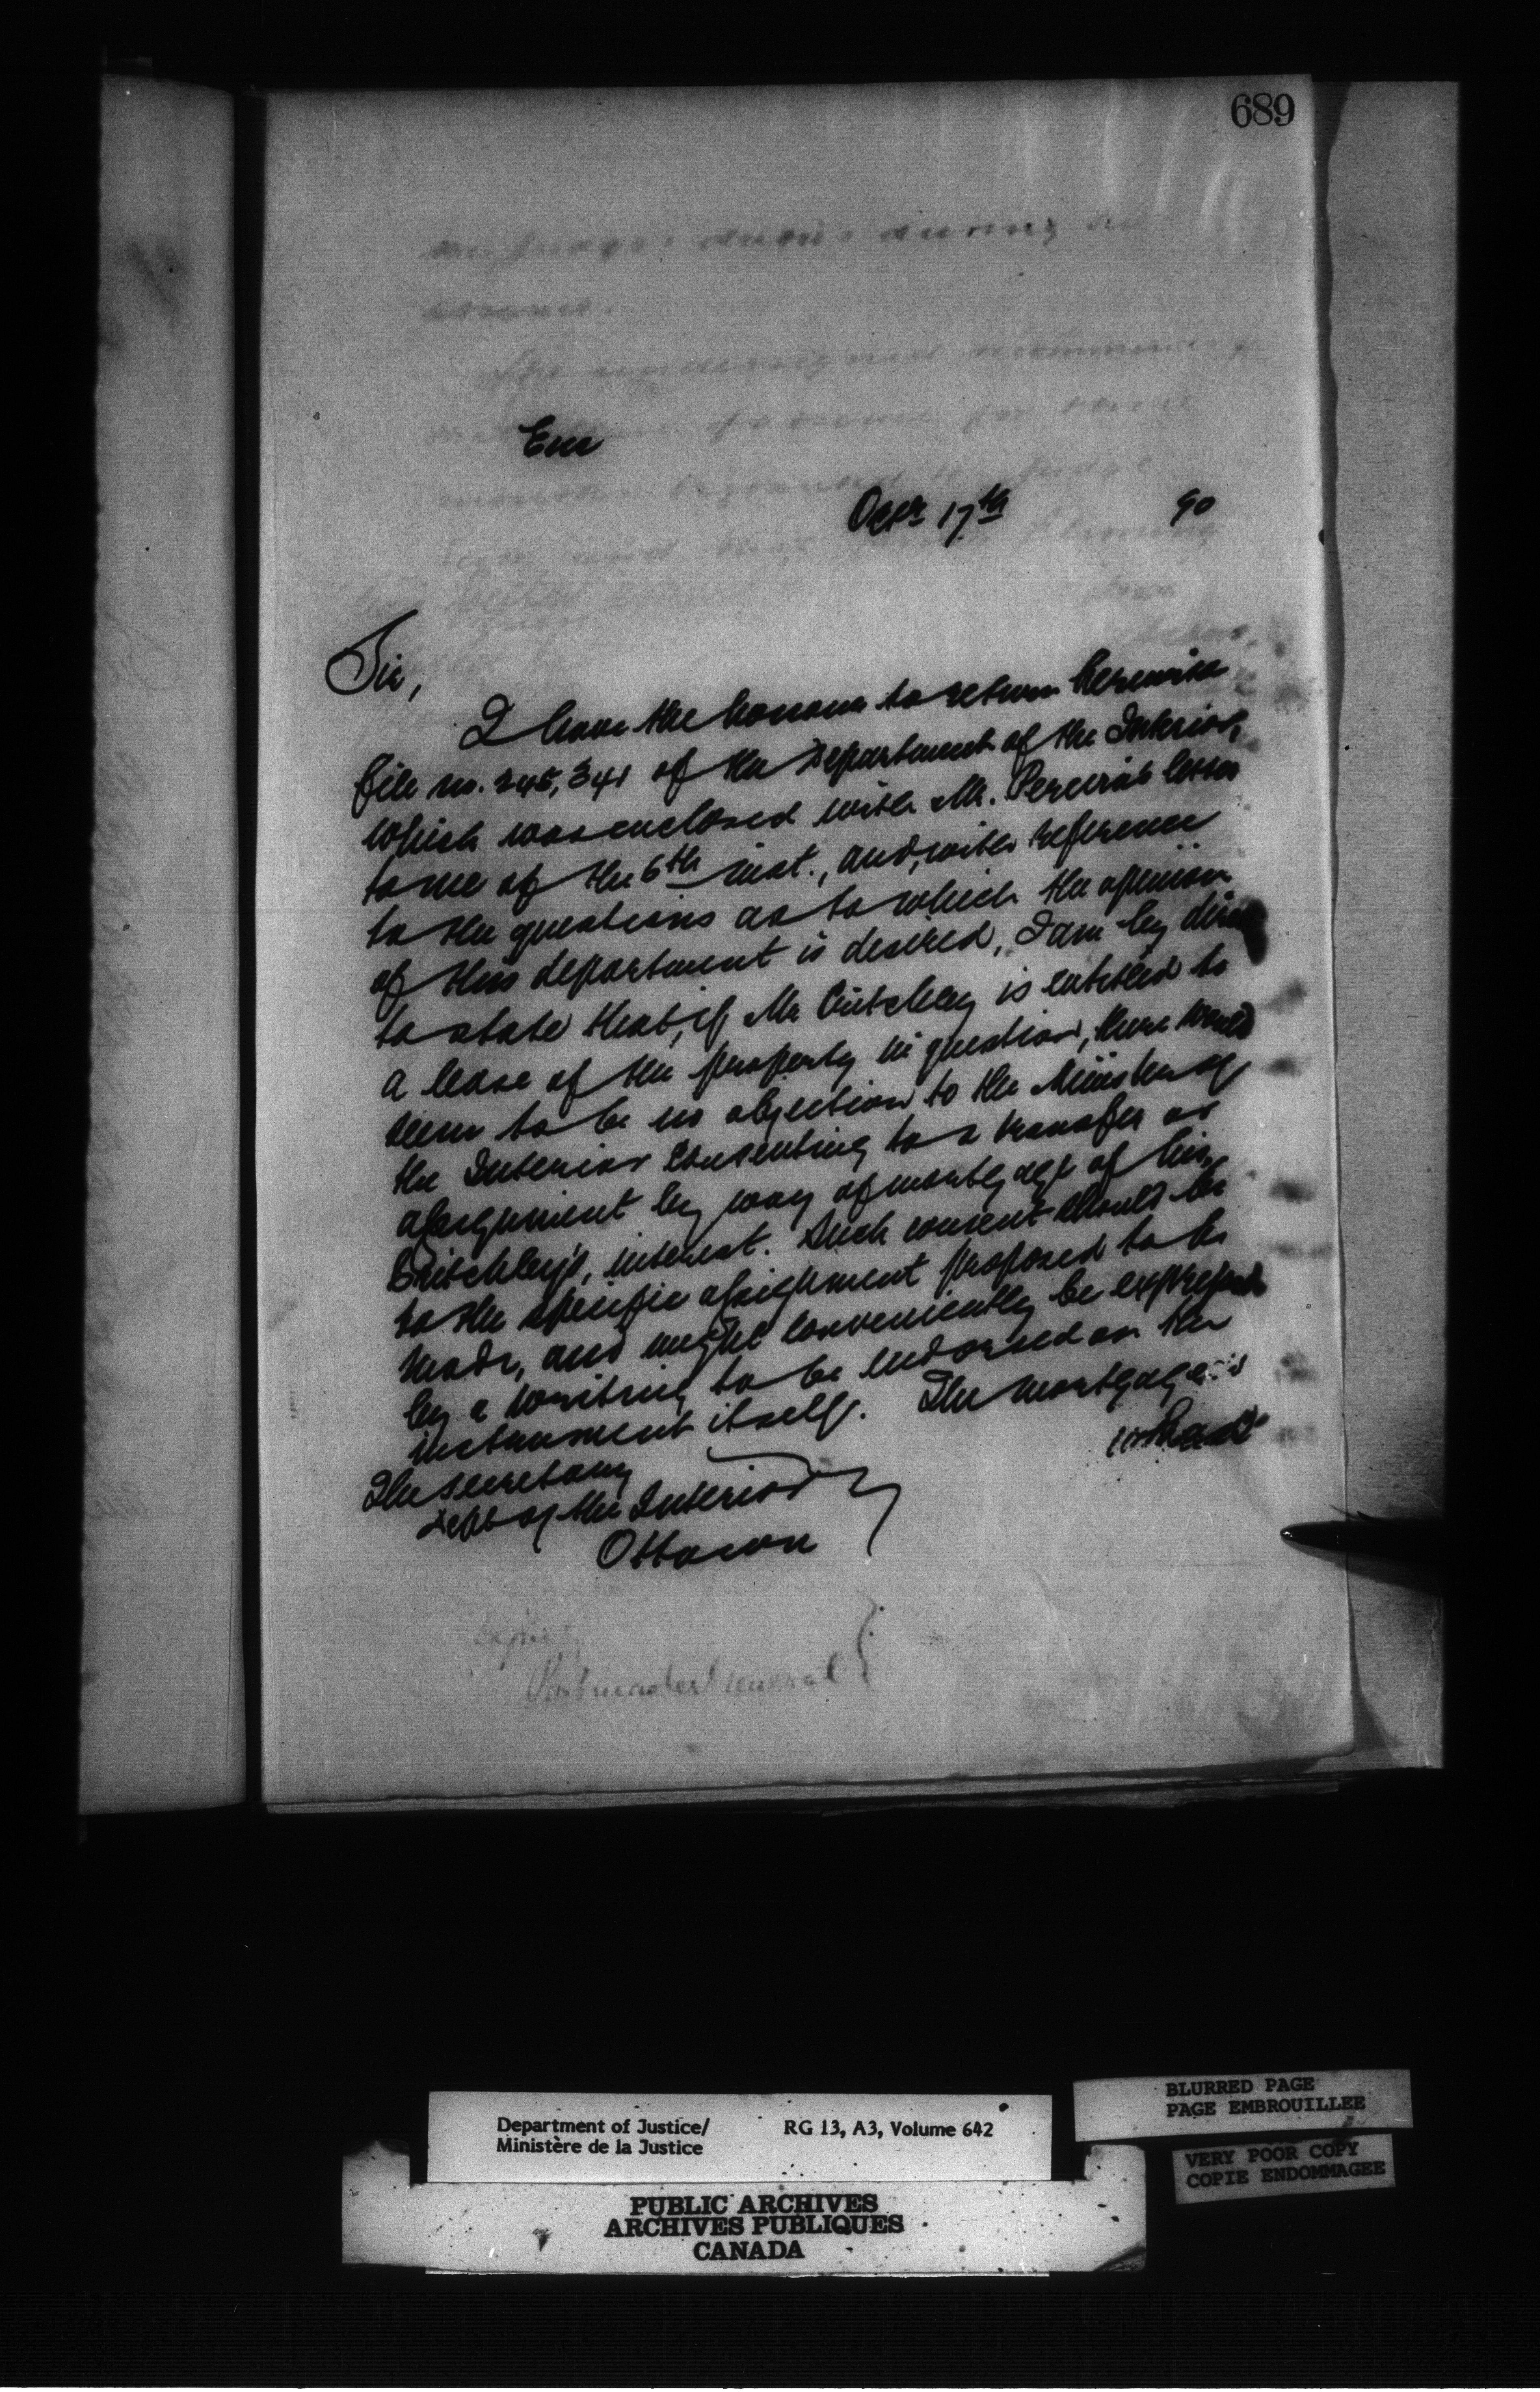 689
Enc
Octr 17th 90
Sir,
I have the honour to return herewith
file no. 245,341 of the Department of the Interior,
which was enclosed with Mr. Pereira's letter
to me of the 6th inst., and, with reference
to the questions as to which the opinion
of this department is desired, I am by direc
to state that, if Mr Critchley is entitled to
a lease of the property in question, there would
seem to be no objection to the Minister of
the Interior consenting to a transfer or
assignment by way of mortgage of his,
Critchley's, interest. Such consent should be
to the specific assignment proposed to be
made, and might conveniently be expressed
by a writing to be endorsed on the
instrument itself. The mortgage is
The Secretary
Dept of the Interior
Ottawa
Postmaster General
Department of Justice/ RG 13, A3, Volume 642
Ministère de la Justice
BLURRED PAGE
PAGE EMBROUILLEE
VERY POOR COPY
COPIE ENDOMMAGEE
PUBLIC ARCHIVES
ARCHIVES PUBLIQUES
CANADA